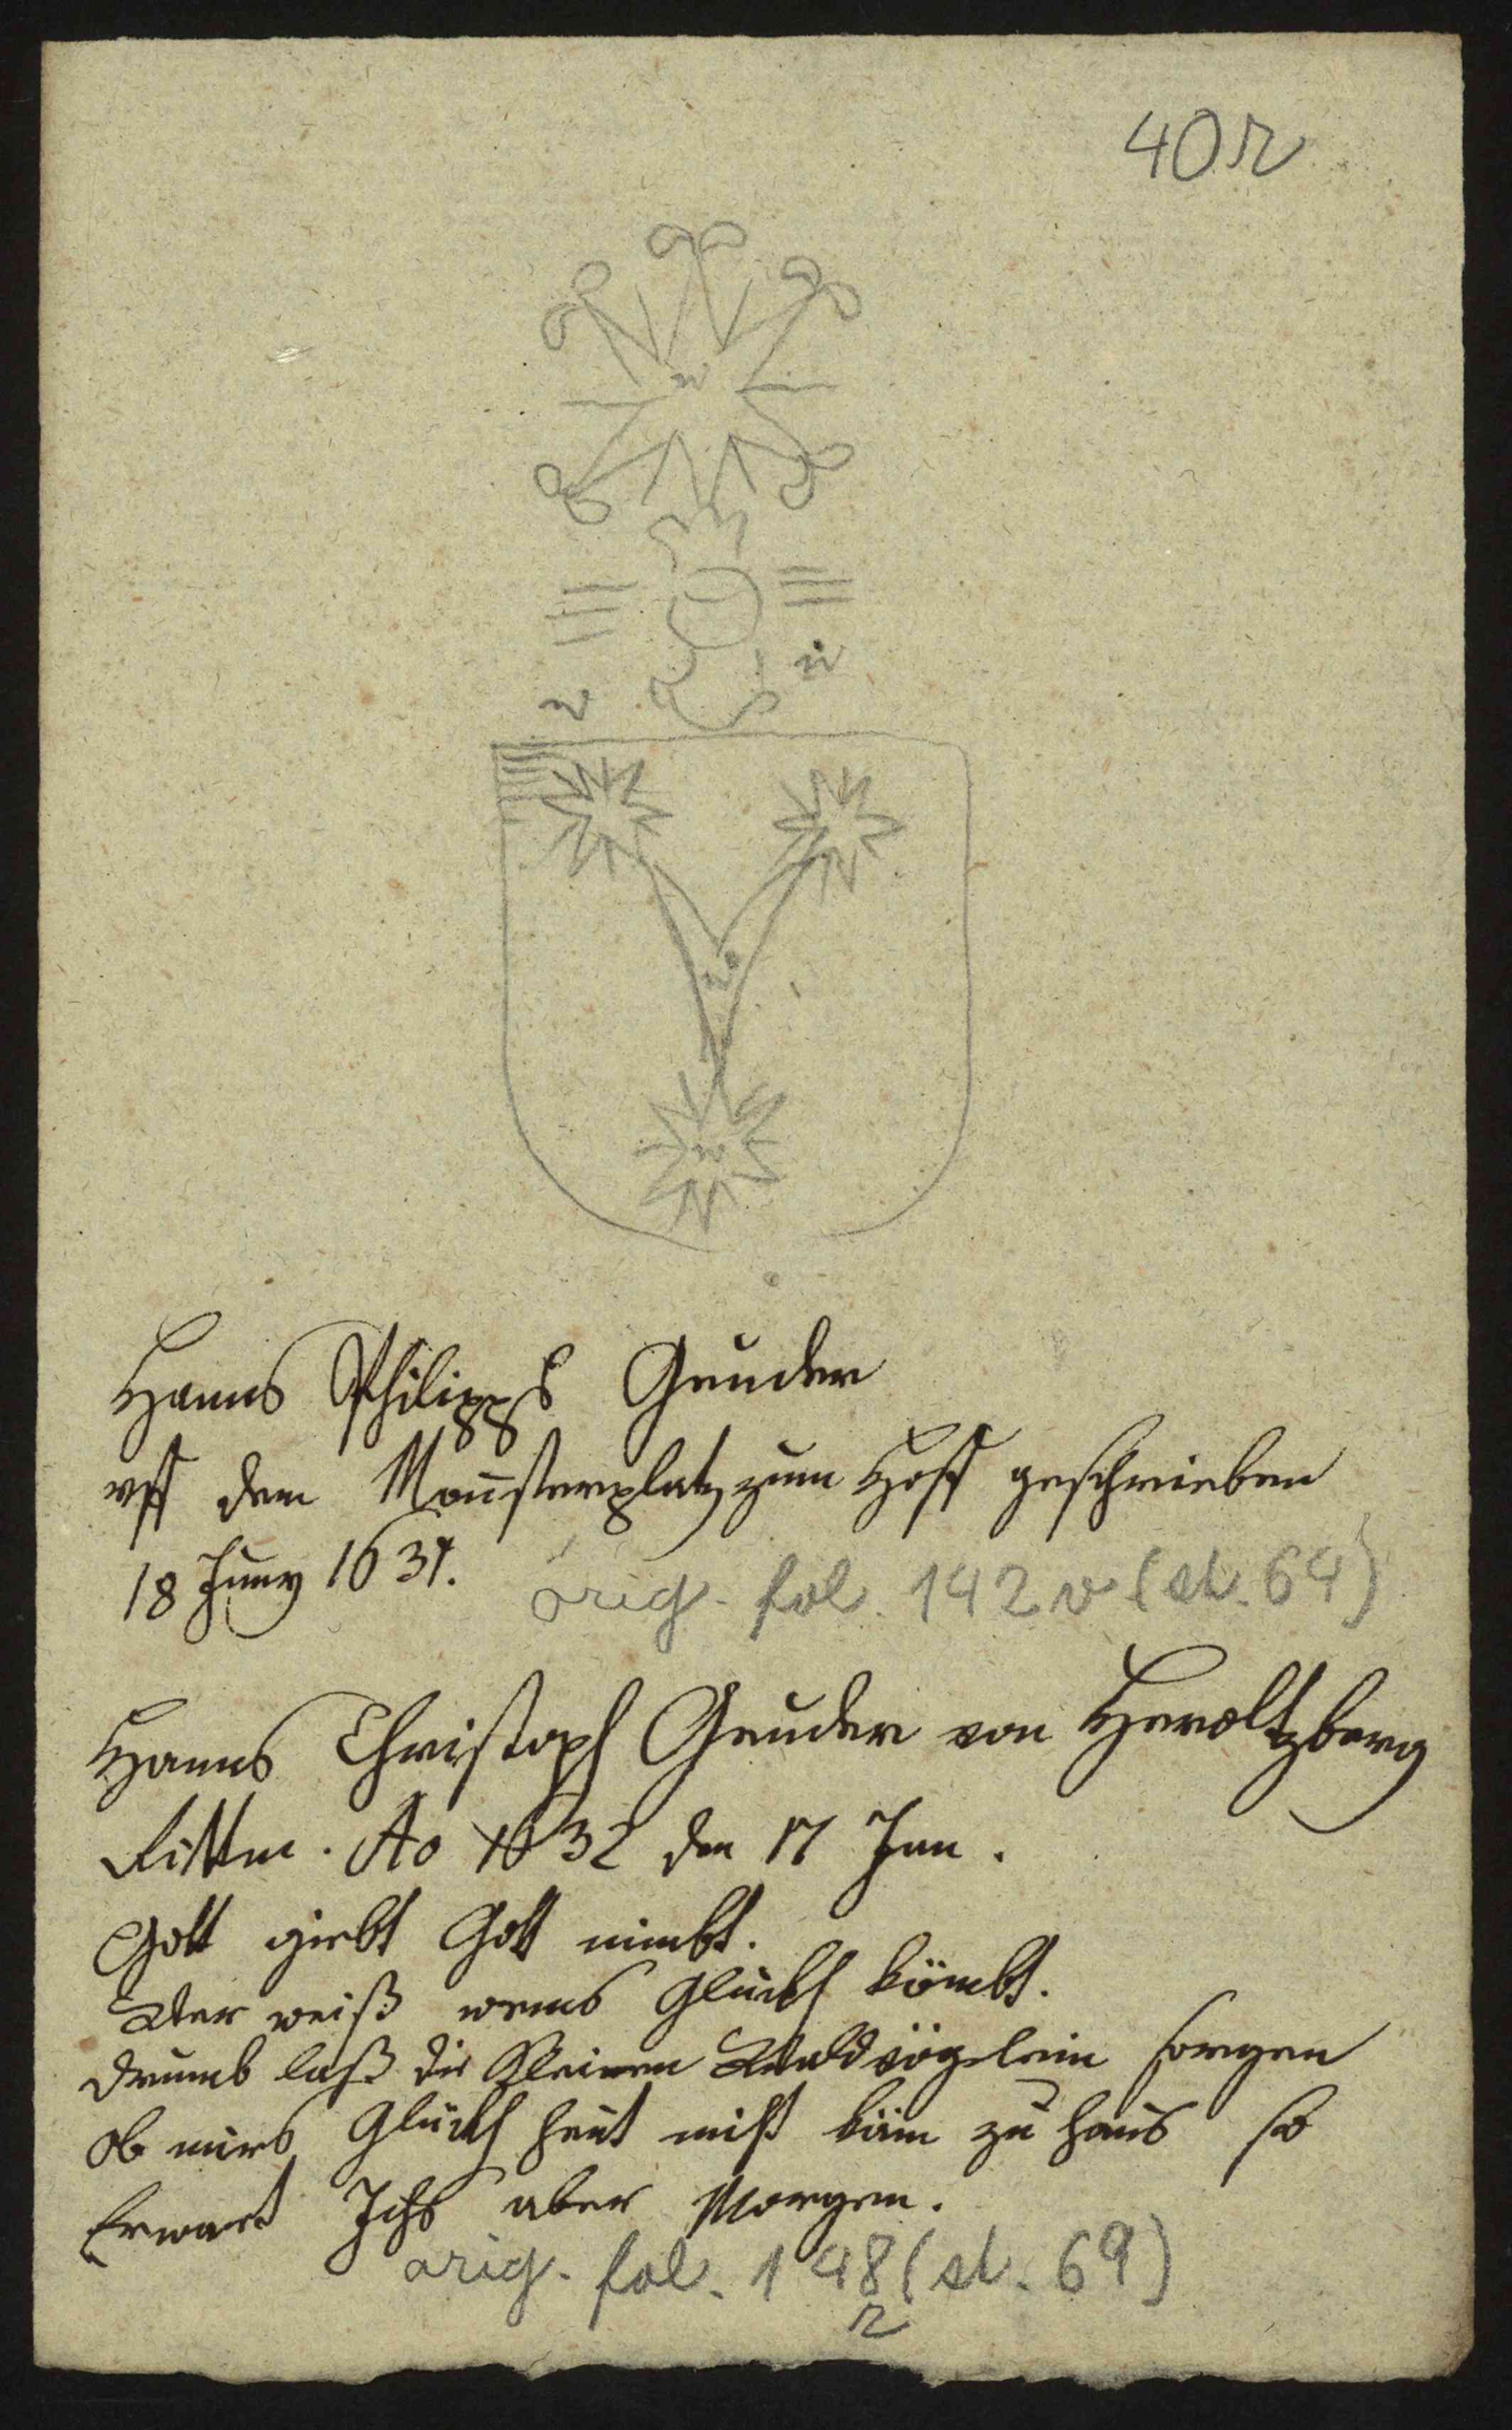 40r
w
w
w
w
w
Hanns Philipps Geuder
vff dem Mousterplatz zum Hoff geschrieben
18 Juny 1631.
orig. fol. 142v (st. 64)
Hanns Christoph Geuder von Heroltzberg
Rittm. Ao 1632 den 17 Jan.
Gott giebt Gott nimbt.
Wer weiß wems Glückh kömbt.
Drumb laß die Kleinen Waldvögelein sorgen
Ob mirs Glückh heüt nicht käm zu hauß so
Erwart Ichs aber Morgen.
orig. fol. 148 (st. 69)
r